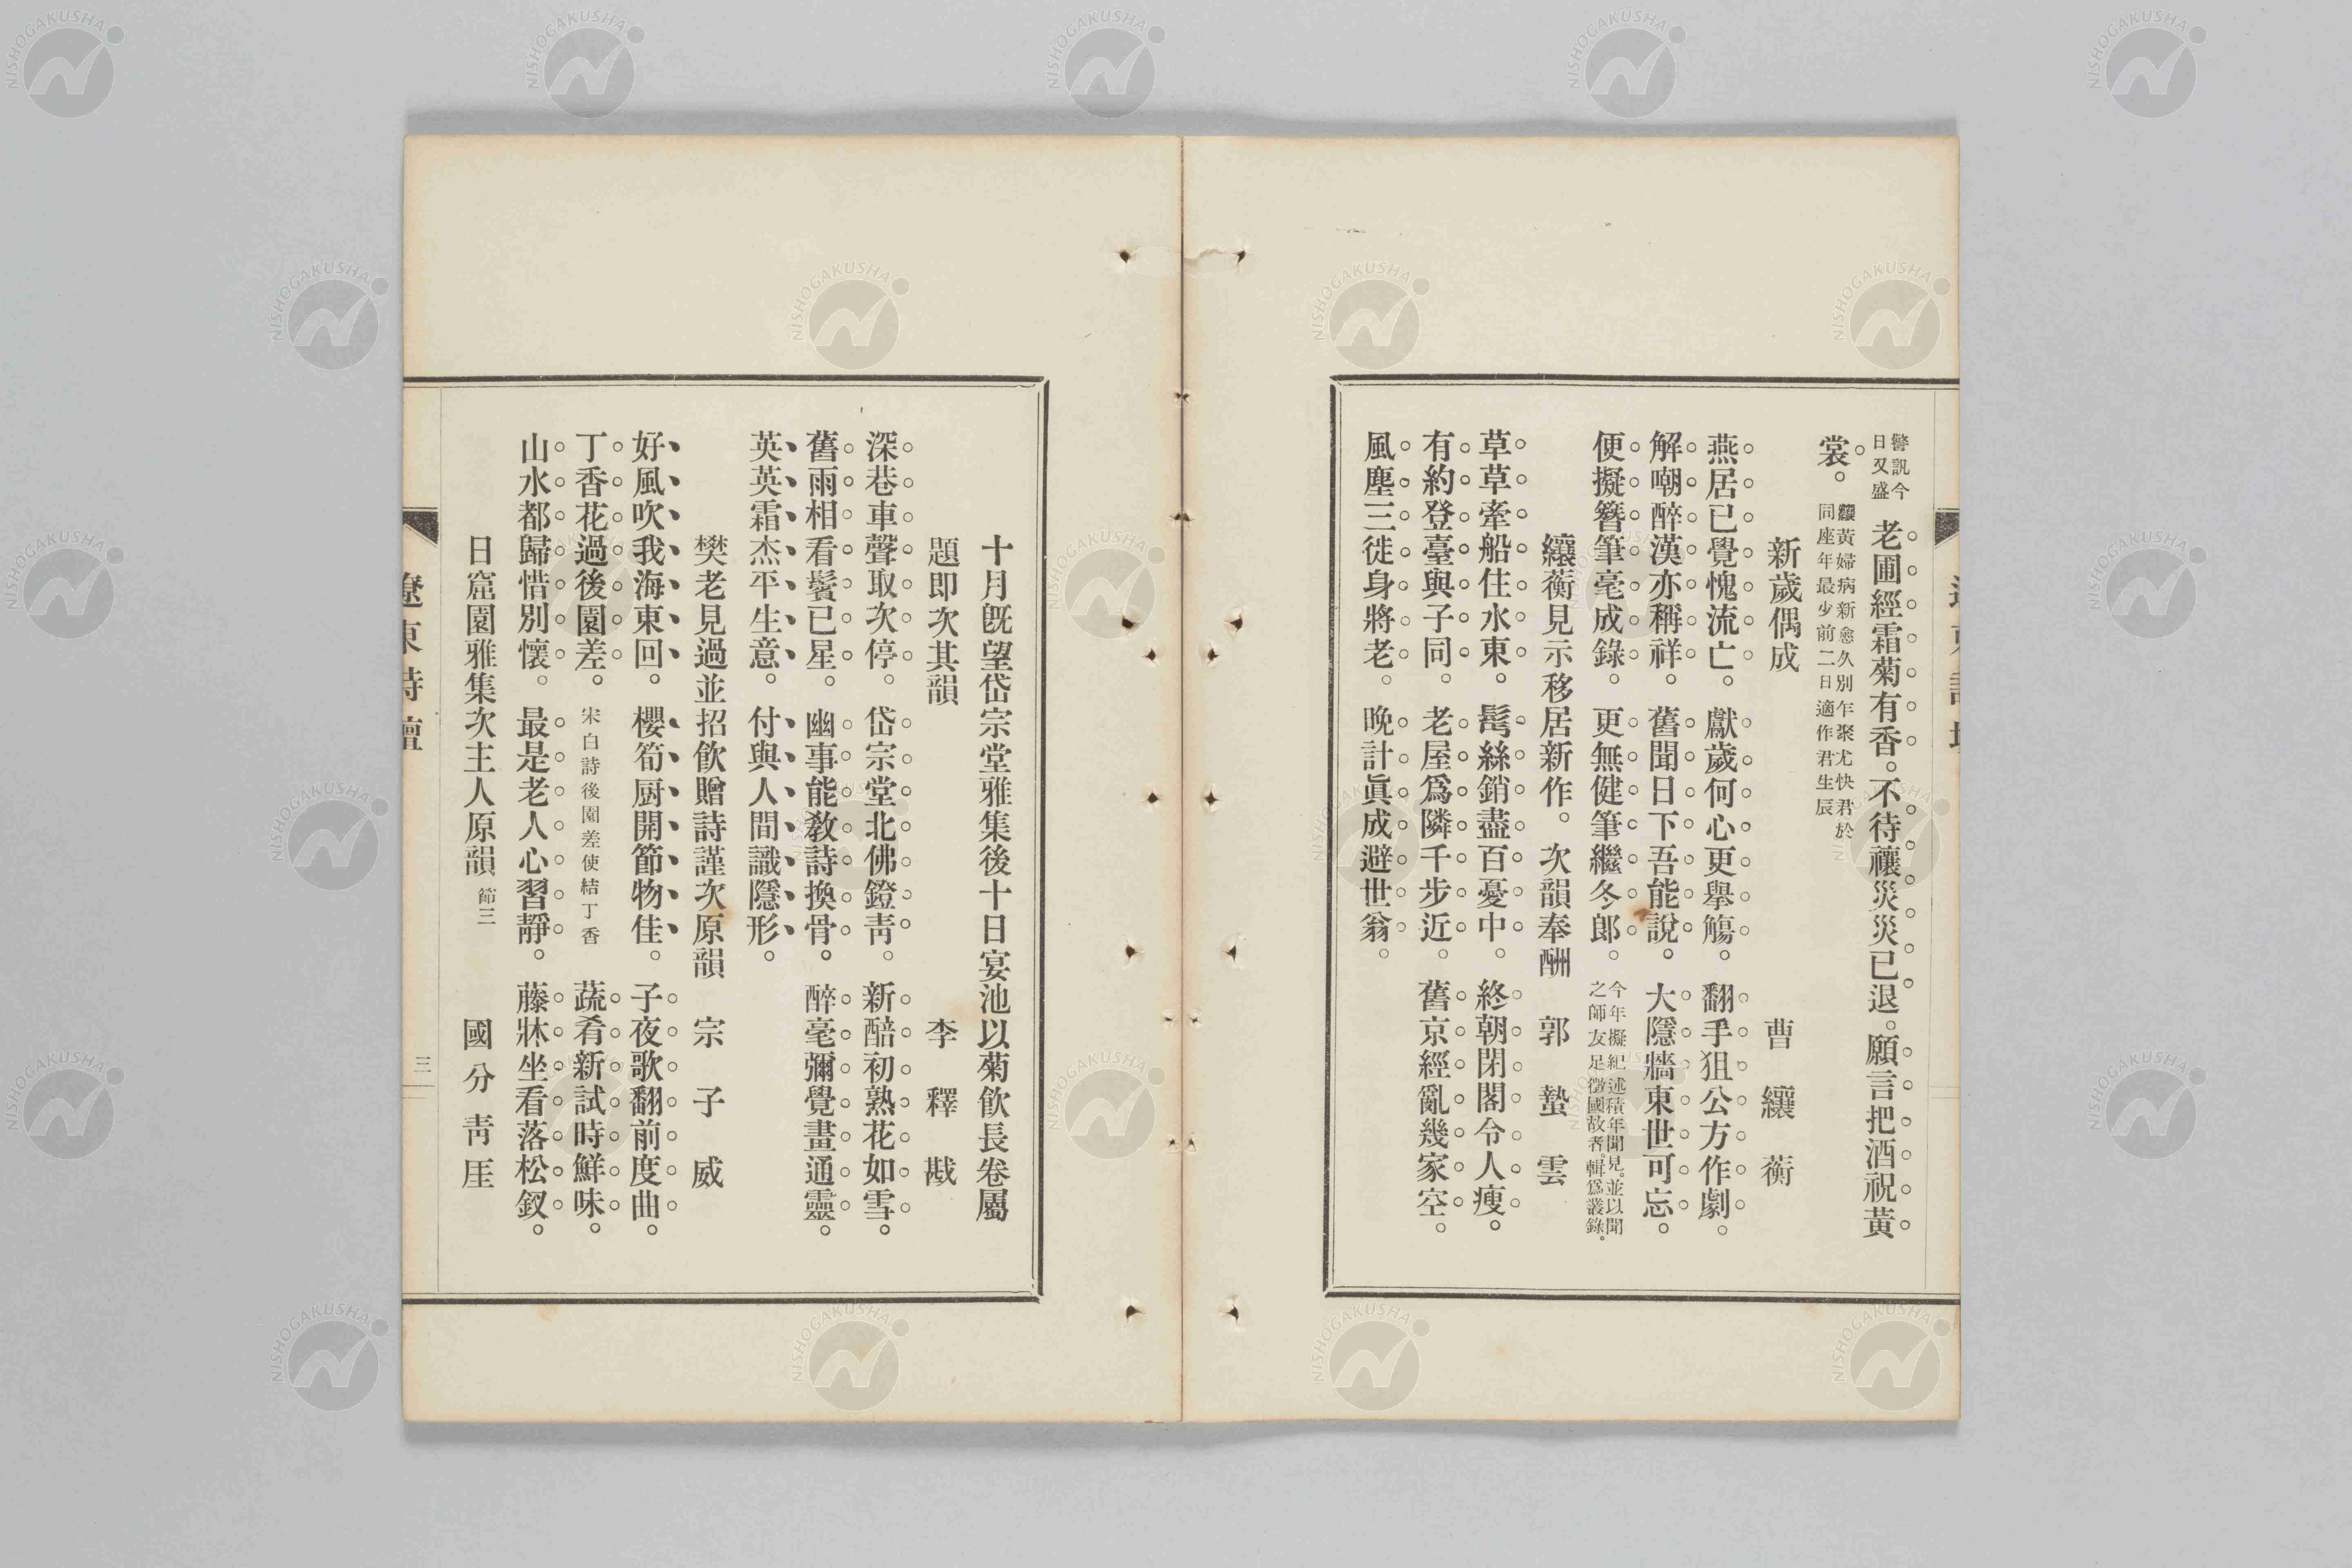 警訊今
日又盛
老圃經霜菊有香。不待禳災災已退。願言把酒祝黃
裳。
纕黃婦病新愈久別乍聚尤快君於
同座年最少前二日適作君生辰
新歲偶成 曹纕蘅
燕居已覺愧流亡。獻歲何心更擧觴。翻手狙公方作劇。
解嘲醉漢亦稱祥。舊聞日下吾能說。大隱牆東世可忘。
便擬簪筆毫成錄。更無健筆繼冬郞。
今年擬紀述積年聞見。並以聞
之師友足徵國故者。輯爲叢錄。
纕蘅見示移居新作。次韻奉酬 郭蟄雲
草草牽船住水東。髩絲銷盡百憂中。終朝閉閣令人瘦。
有約登臺與子同。老屋爲隣千步近。舊京經亂幾家空。
風塵三徙身將老。晚計眞成避世翁。
十月旣望岱宗堂雅集後十日宴池以菊飮長卷屬
題即次其韻 李釋戡
深巷車聲取次停。岱宗堂北佛鐙靑。新醅初熟花如雪。
舊雨相看鬢已星。幽事能敎詩換骨。醉毫彌覺畫通靈。
英英霜杰平生意。付與人間識隱形。
樊老見過並招飮贈詩謹次原韻 宗子威
好風吹我海東回。櫻筍厨開節物佳。子夜歌翻前度曲。
丁香花過後園差。
宋白詩後園差使結丁香
蔬肴新試時鮮味。
山水都歸惜別懷。最是老人心習靜。藤牀坐看落松釵。
日窟園雅集次主人原韻 節三 國分靑厓
遼東詩壇
三
NISHOGAKUSHA